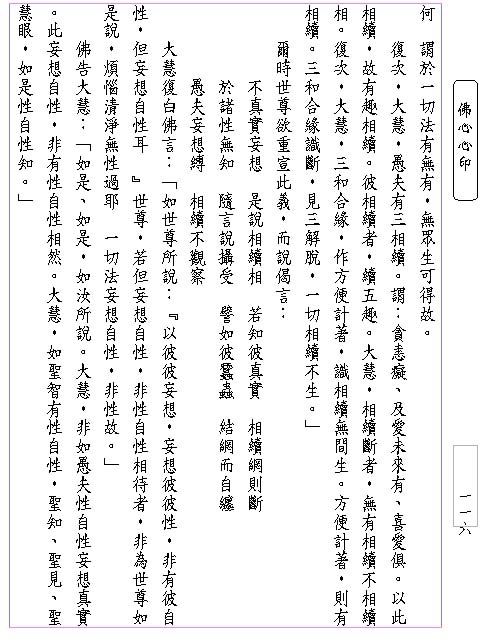 佛心心印
何　謂於一切法有無有，無眾生可得故。
復次，大慧，愚夫有三相續。謂：貪恚癡、及愛未來有、喜愛俱。以此
相續，故有趣相續。彼相續者，續五趣。大慧，相續斷者，無有相續不相續
相。復次，大慧，三和合緣，作方便計著，識相續無間生。方便計著，則有
相續。三和合緣識斷，見三解脫，一切相續不生。」
爾時世尊欲重宣此義，而說偈言：
不真實妄想　是說相續相　若知彼真實　相續網則斷
於諸性無知　隨言說攝受　譬如彼蠶蟲　結網而自纏
愚夫妄想縛　相續不觀察
大慧復白佛言：「如世尊所說：『以彼彼妄想，妄想彼彼性，非有彼自
性，但妄想自性耳　』世尊，若但妄想自性，非性自性相待者，非為世尊如
是說，煩惱清淨無性過耶　一切法妄想自性，非性故。」
佛告大慧：「如是、如是，如汝所說。大慧，非如愚夫性自性妄想真實
。此妄想自性，非有性自性相然。大慧，如聖智有性自性，聖知、聖見、聖
慧眼，如是性自性知。」
一一六